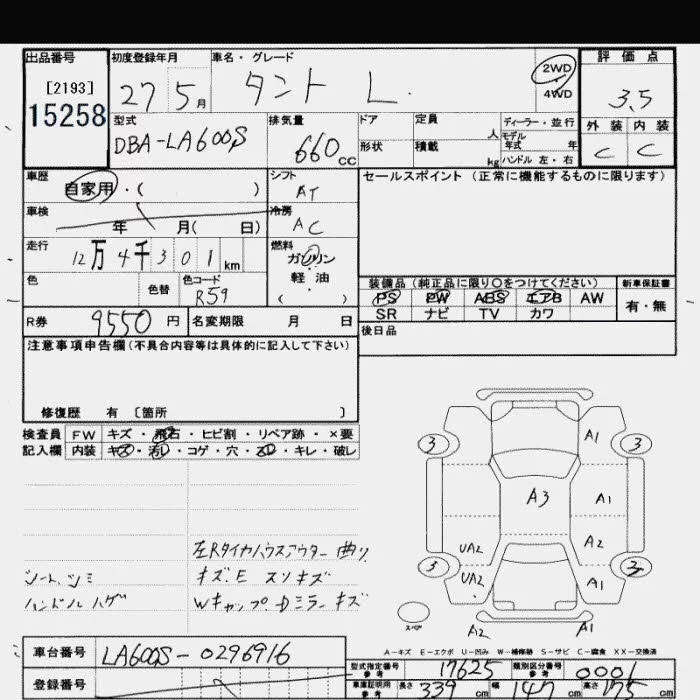 出品番号 初度登録年月 車名・グレード 評価点
[2193] 27 5月 タント L. 2WD 4WD 3.5
15258
型式 排気量 ドア 定員 ディーラー・並行 外装 内装
DBA-LA600S 660cc 人 モデル年式 年 C C
形状 積載 kg ハンドル 左・右
車歴 シフト セールスポイント(正常に機能するものに限ります)
自家用・( ) AT
車検 冷房
年 月( 日) AC
走行 燃料
12万4千301km ガソリン
軽・油
色 色替 色コード ( )
R59
装備品(純正品に限り○をつけてください) 新車保証書
PS PW ABS エアB AW 有・無
SR ナビ TV カワ
R券 9550円 名変期限 月 日 後日品
注意事項申告欄(不具合内容等は具体的に記入して下さい)
修復歴 有 〔箇所 〕
検査員 FW キズ・飛石・ヒビ割・リペア跡・×要
記入欄 内装 キズ・汚レ・コゲ・穴・スレ・キレ・破レ
3 A1 3
A3 A1
UA2 A2
UA2 A1
スペア
A2 A1
左Rタイヤハウスアウター曲り
シート シミ キズ.E スリキズ
ハンドルハゲ Wキャップ.Dミラーキズ
A-キズ E-エクボ U-凹み W-補修跡 S-サビ C-腐食 XX-交換済
車台番号 LA600S-0296916
登録番号
型式指定番号 参考 17625 類別区分番号 参考 0001
車庫証明用 参考 長さ 339cm 幅 147cm 高さ 175cm